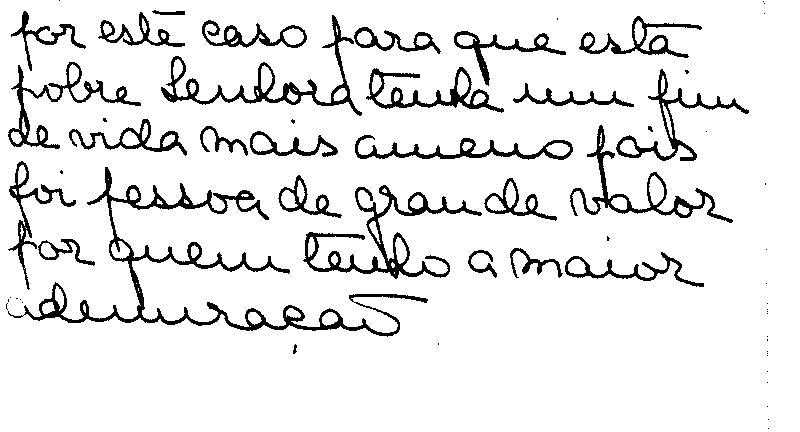 por este caso para que esta
pobre Senhora tenha um fim
de vida mais ameno pois
foi pessoa de grande valor
por quem tenho a maior
ademiração